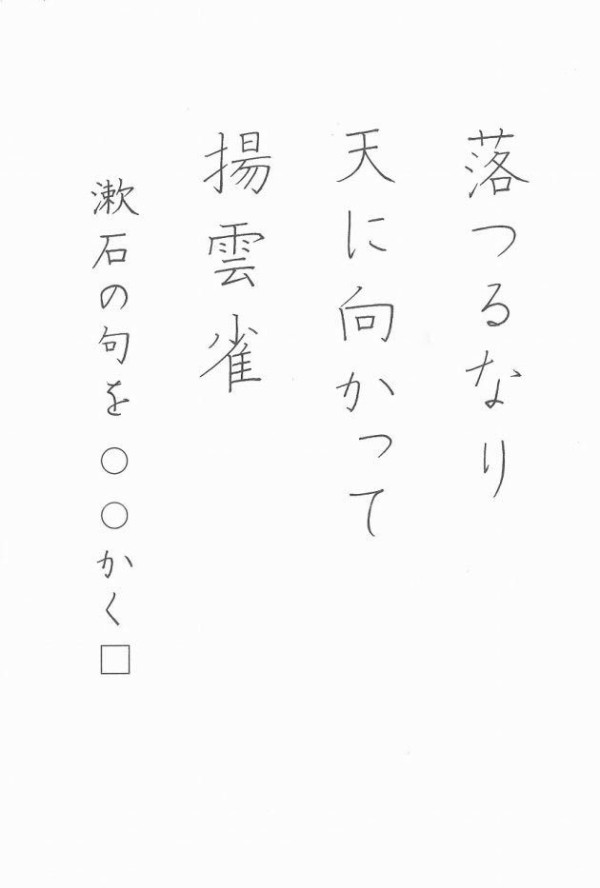 落つるなり
天に向かって
揚雲雀
漱石の句を○○かく□